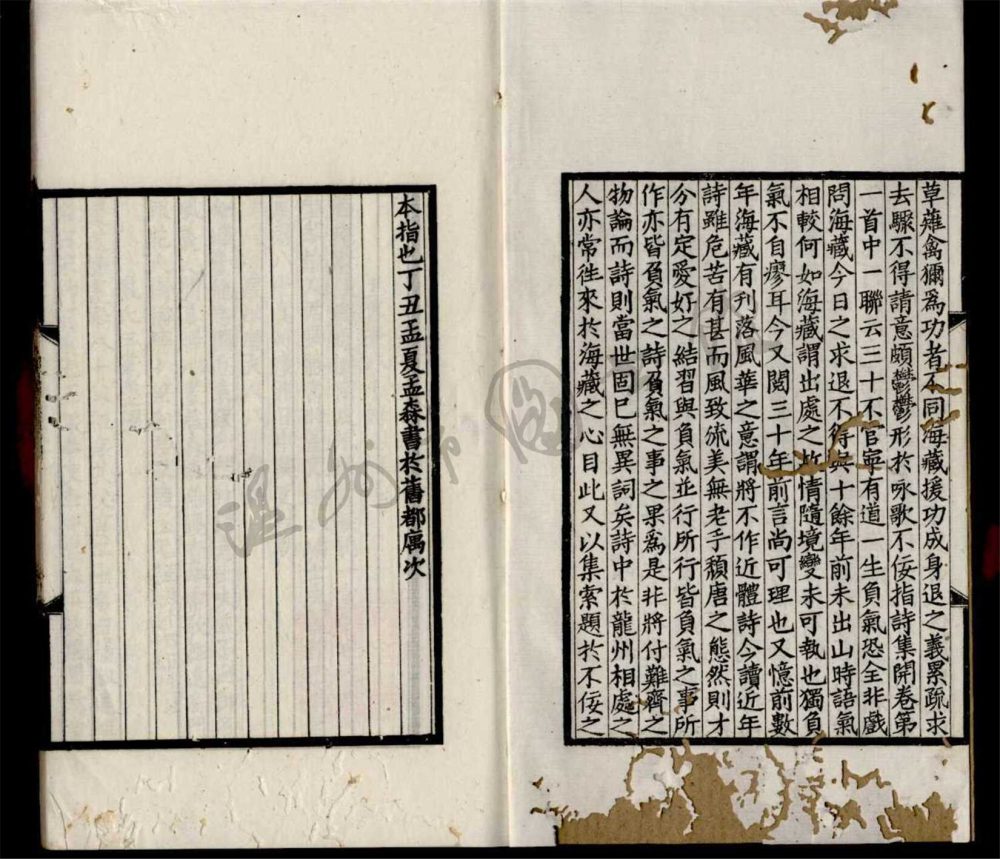 草薙禽獮為功者不同海藏援功成身退之義累疏求
去驟不得請意頗鬱鬱形於咏歌不佞指詩集開卷第
一首中一聯云三十不官寧有道一生負氣恐全非戲
問海藏今日之求退不得與十餘年前未出山時語氣
相較何如海藏謂出處之故情隨境變未可執也獨負
氣不自瘳耳今又閱三十年前言尚可理也又憶前數
年海藏有刊落風華之意謂將不作近體詩今讀近年
詩雖危苦有甚而風致流美無老手頹唐之態然則才
分有定愛好之結習與負氣並行所行皆負氣之事所
作亦皆負氣之詩負氣之事之果為是非將付難齊之
物論而詩則當世固已無異詞矣詩中於龍州相處之
人亦常往來於海藏之心目此又以集索題於不佞之
本指也丁丑孟夏孟森書於舊都寓次
溫州市圖